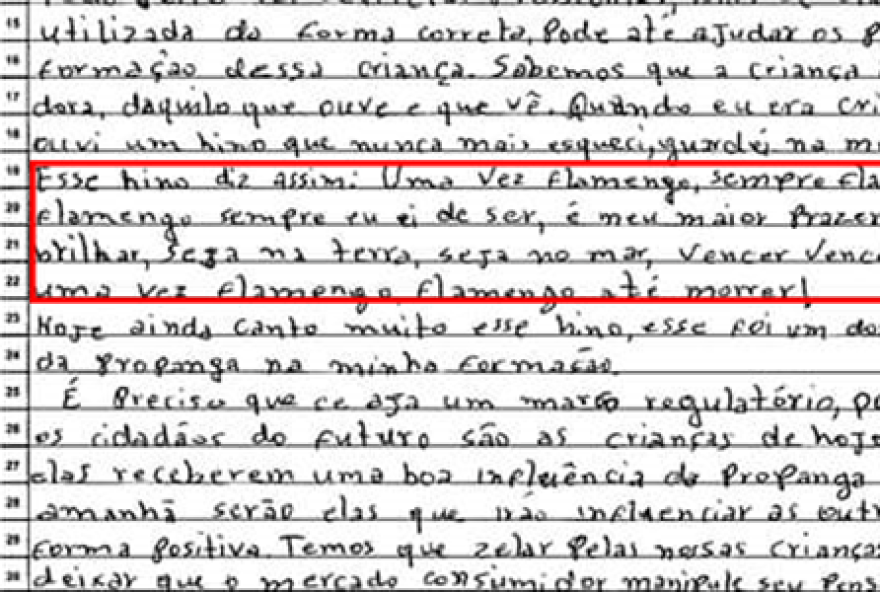 15 utilizada da forma correta, Pode até ajudar os
16 formação dessa criança. Sabemos que a criança
17 dora, daquilo que ouve e que vê. Quando eu era cri
18 ouvi um hino que nunca mais esqueci, guardei na m
19 Esse hino diz assim: Uma vez flamengo, sempre fla
20 flamengo sempre eu ei de ser, é meu maior Prazer
21 brilhar, seja na terra, seja no mar, vencer vence
22 uma vez flamengo flamengo até morrer!
23 Hoje ainda canto muito esse hino, esse foi um do
24 da Propanga na minha formação.
25 É Preciso que ce aja um marco regulatório, po
26 os cidadãos do futuro são as crianças de hoje
27 elas receberem uma boa influência da Propanga
28 amanhã serão elas que irão influenciar as outr
29 forma Positiva. Temos que zelar Pelas nossas criança
30 deixar que o mercado consumidor manipule seu Pens